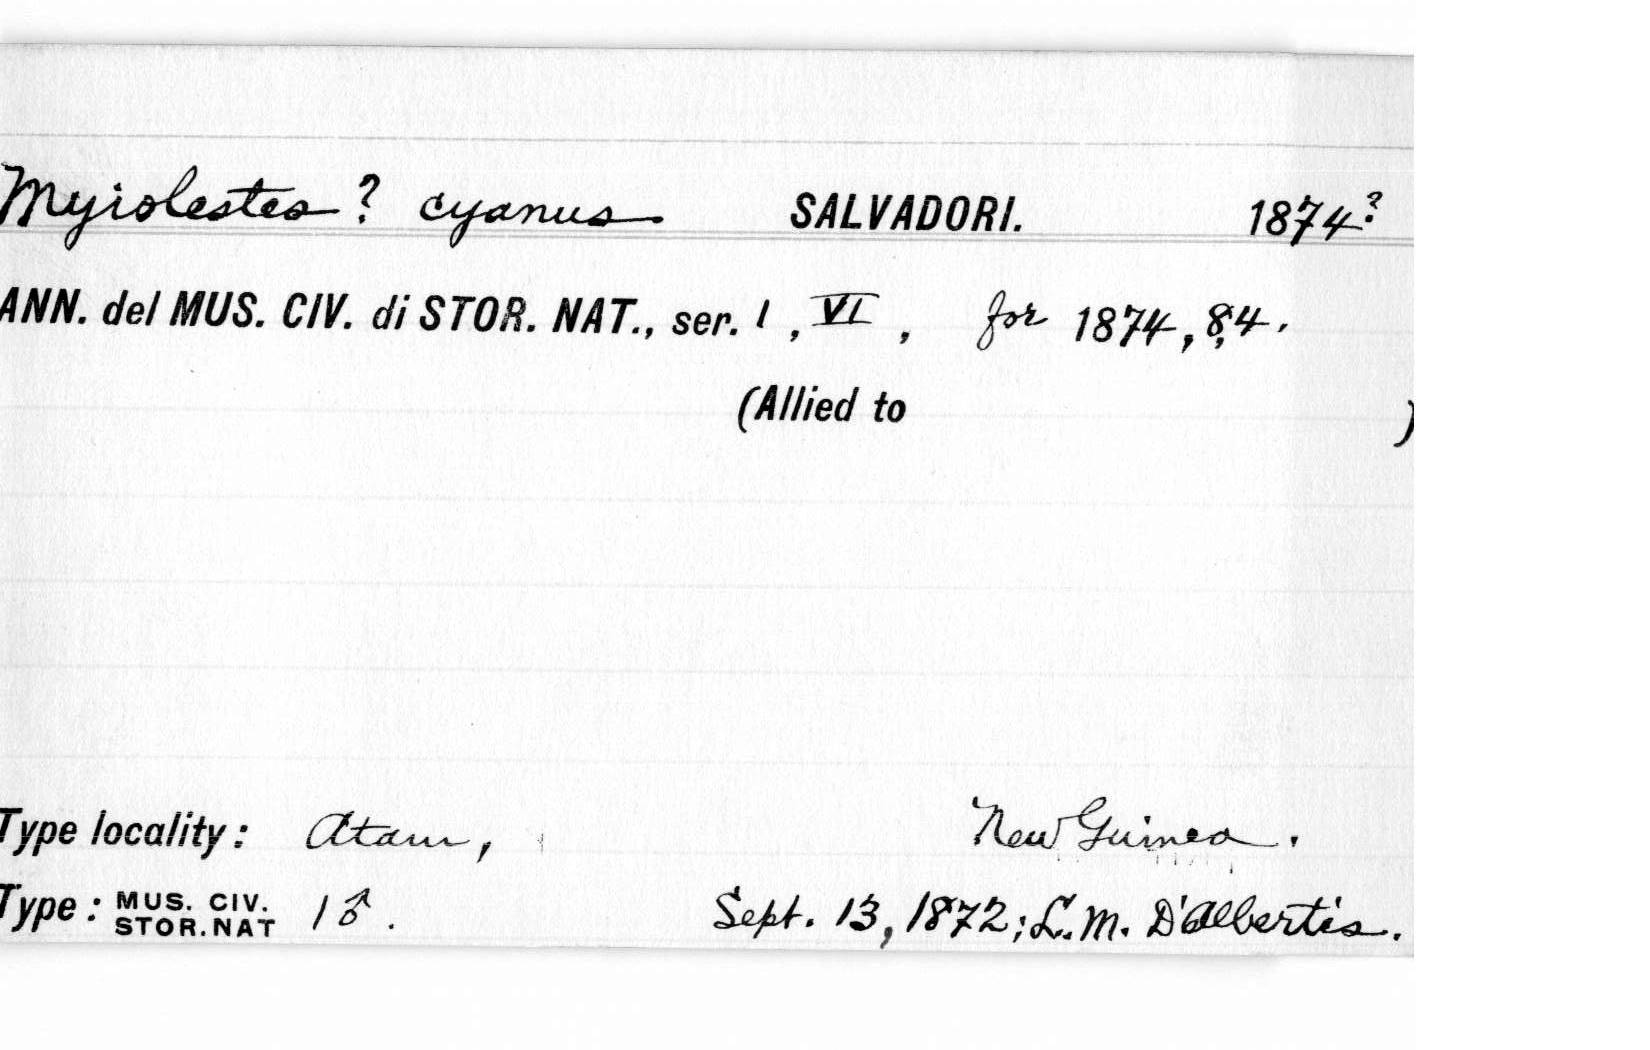 Myiolestes? cyanus. SALVADORI. 1874?
ANN. del MUS. CIV. di STOR. NAT., ser. 1, VI, for 1874, 84.
(Allied to )
Type locality: Atam, New Guinea.
Type: MUS. CIV. STOR. NAT 1♂. Sept. 13, 1872; L. M. D'Albertis.